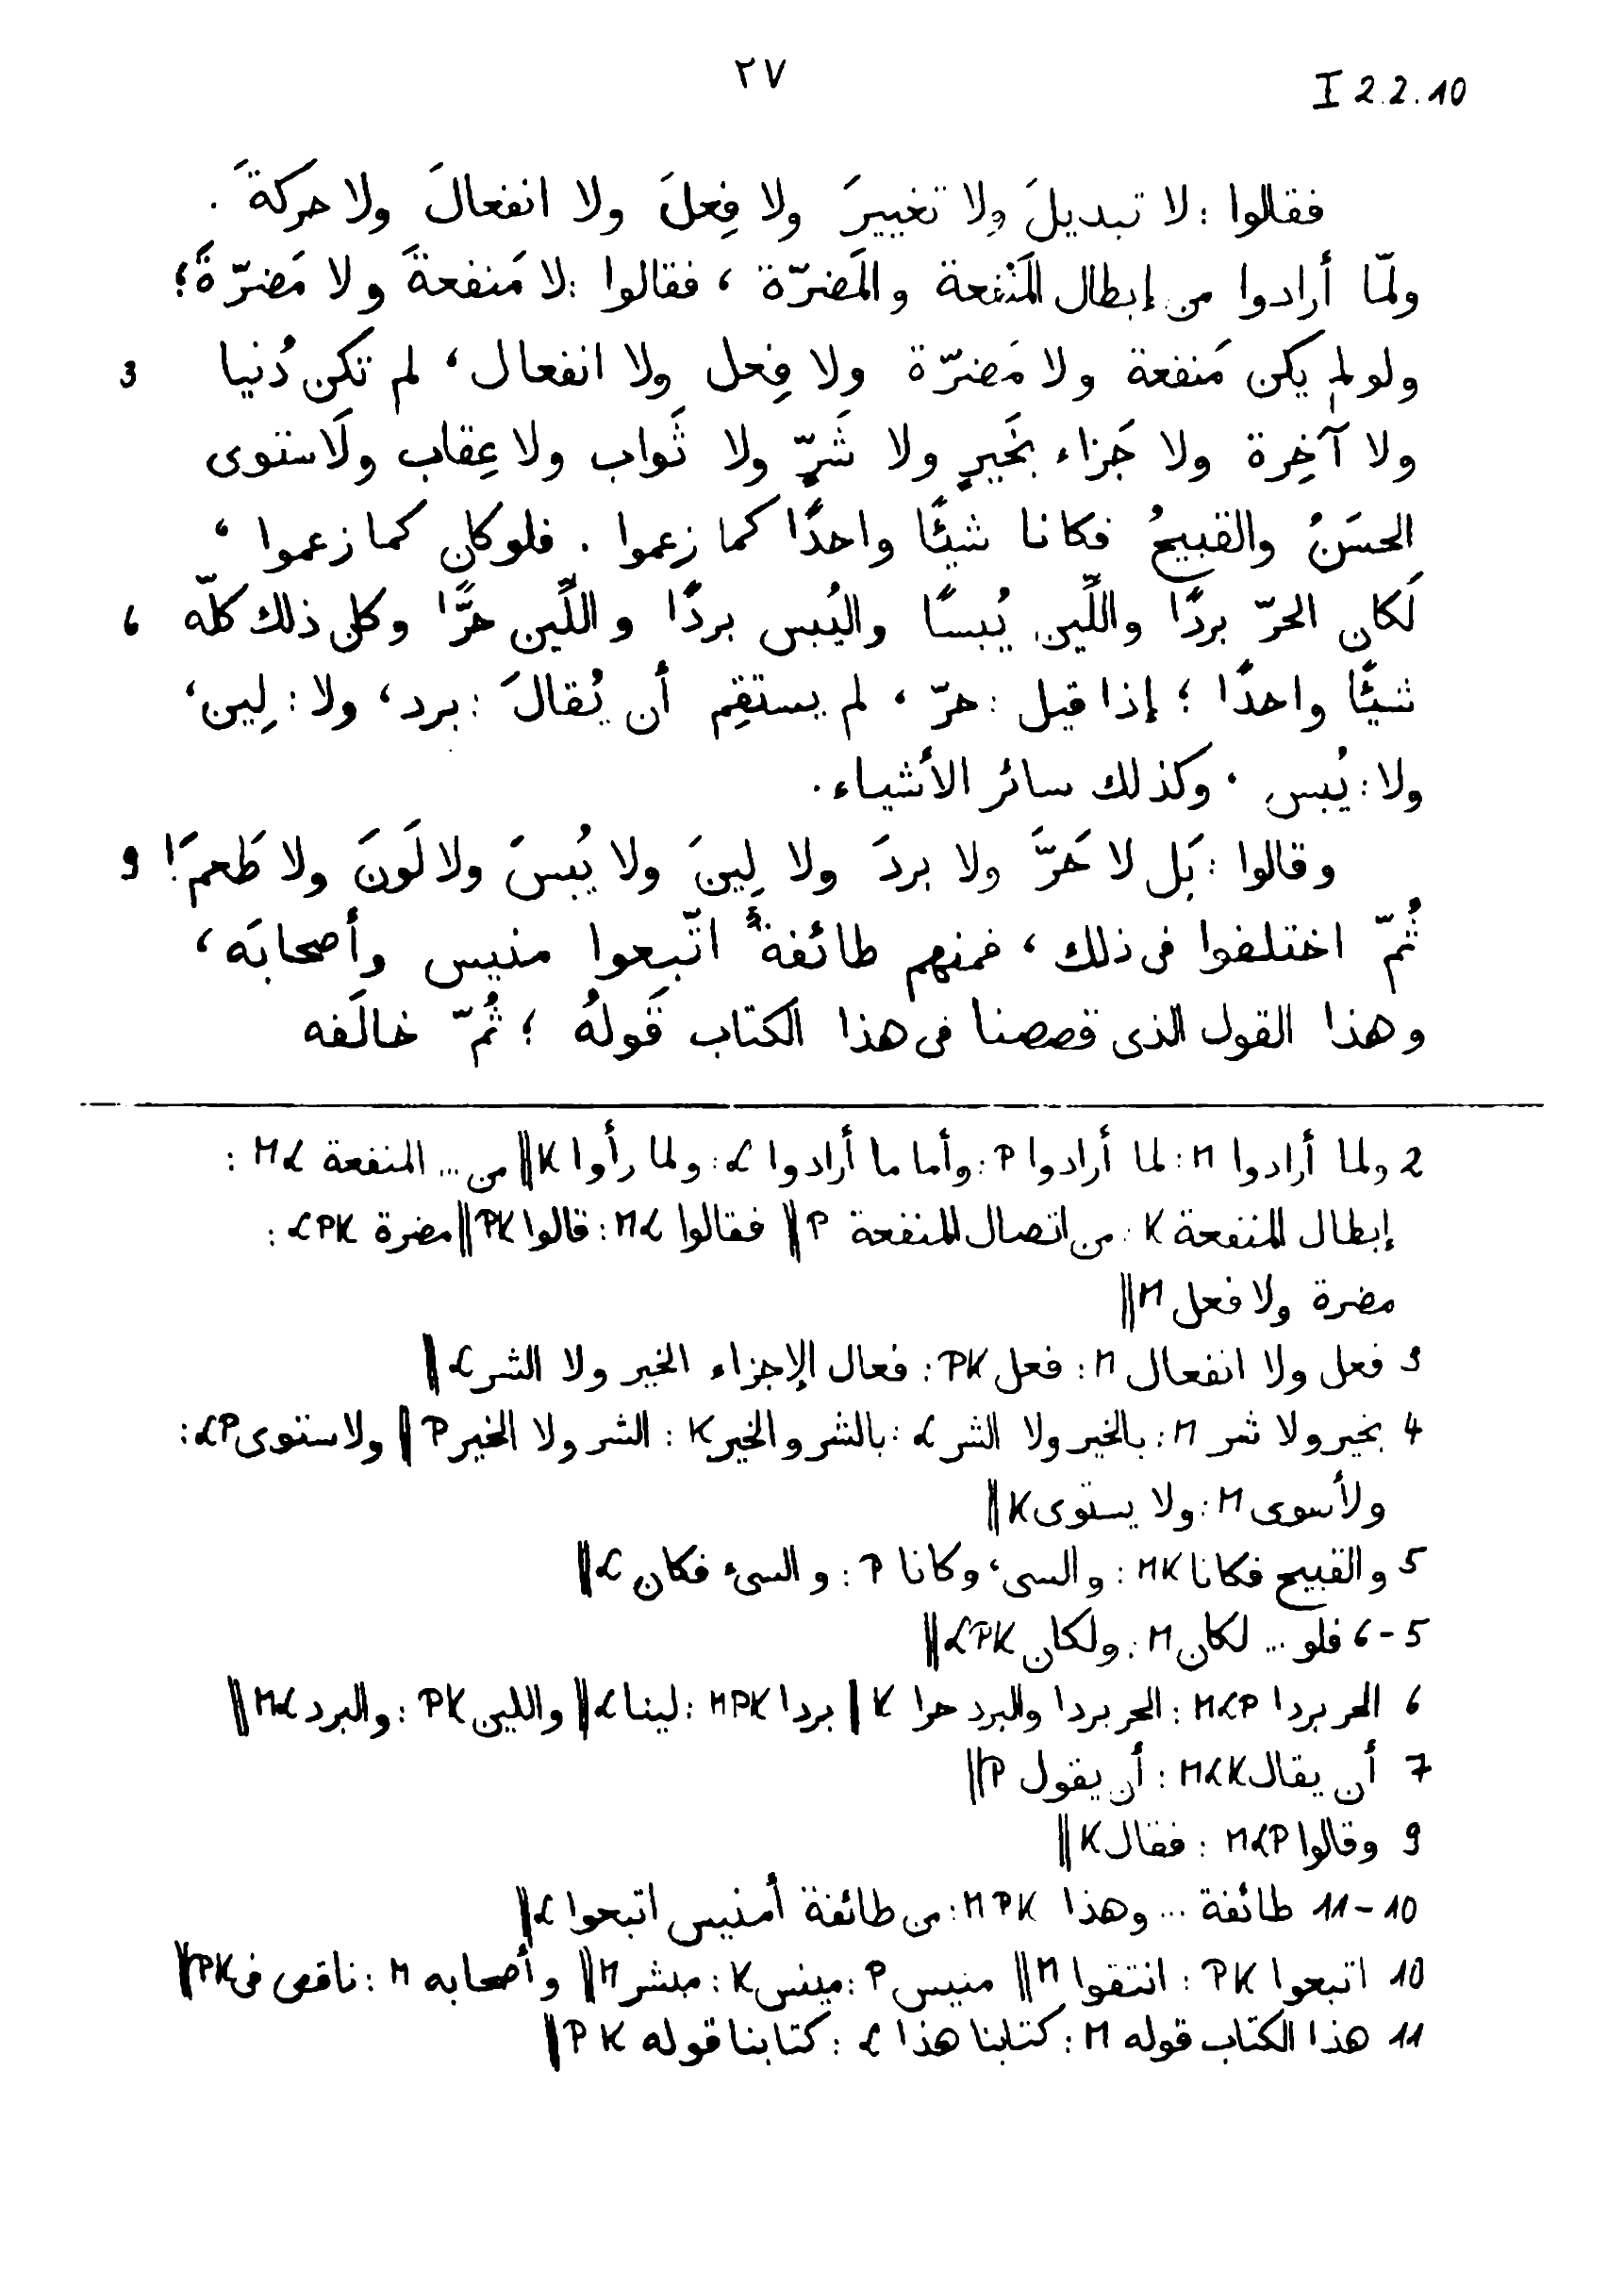 ٢٧
I 2.2.10
فقالوا : لا تبديلَ ولا تغييرَ ولا فِعلَ ولا انفعالَ ولا حركةَ .
ولمّا أرادوا من إبطال المَنْفعة والمَضرّة ، فقالوا : لا مَنفعةَ ولا مَضرّةَ ؛
ولو لم يكن مَنفعة ولا مَضرّة ولا فِعل ولا انفعال ، لم تكن دُنيا 3
ولا آخِرة ولا جَزاء بخَيرٍ ولا شَرٍّ ولا ثَواب ولا عِقاب ولَاستوى
الحسَنُ والقبيحُ فكانا شيئًا واحدًا كما زعموا . فلو كان كما زعموا ،
لَكان الحرّ بردًا واللِّين يُبسًا واليُبس بردًا واللِّين حرًّا وكلّ ذلك كلّه 6
شيئًا واحدًا ؛ إذا قيل : حرّ ، لم يستقِم أن يُقالَ : برد ، ولا : لِين ،
ولا : يُبس . وكذلك سائر الأشياء .
وقالوا : بَل لا حَرَّ ولا بردَ ولا لِينَ ولا يُبسَ ولا لَونَ ولا طَعمَ ! 9
ثُمّ اختلفوا فى ذلك ، فمنهم طائفةٌ اتّبعوا منيس وأصحابَه ،
وهذا القول الذى قصصنا فى هذا الكتاب قَولهُ ؛ ثُمّ خالَفه
2 ولما أرادوا M : لما أرادوا P : وأما ما أرادوا L : ولما رأوا K ‖ من ... المنفعة ML :
إبطال المنفعة K : من اتصال المنفعة P ‖ فقالوا ML : قالوا PK ‖ مضرة LPK :
مضرة ولا فعل M ‖
3 فعل ولا انفعال M : فعل PK : فعال الإجزاء الخير ولا الشر L ‖
4 بخير ولا شر M : بالخير ولا الشر L : بالشر والخير K : الشر ولا الخير P ‖ ولاستوى LP :
ولأسوى M : ولا يستوى K ‖
5 والقبيح فكانا MK : والسىء وكانا P : والسىء فكان L ‖
5-6 فلو ... لكان M : ولكان LPK ‖
6 الحر بردا MLP : الحر بردا والبرد حرا K ‖ بردا MPK : لينا L ‖ واللين PK : والبرد ML ‖
7 أن يقال MLK : أن يقول P ‖
9 وقالوا MLP : فقال K ‖
10-11 طائفة ... وهذا MPK : من طائفة أمنيس اتبحوا L ‖
10 اتبعوا PK : انتقوا M ‖ منيس P : مينس K : مبشر M ‖ وأصحابه M : ناقص فى PK ‖
11 هذا الكتاب قوله M : كتابنا هذا L : كتابنا قوله PK ‖